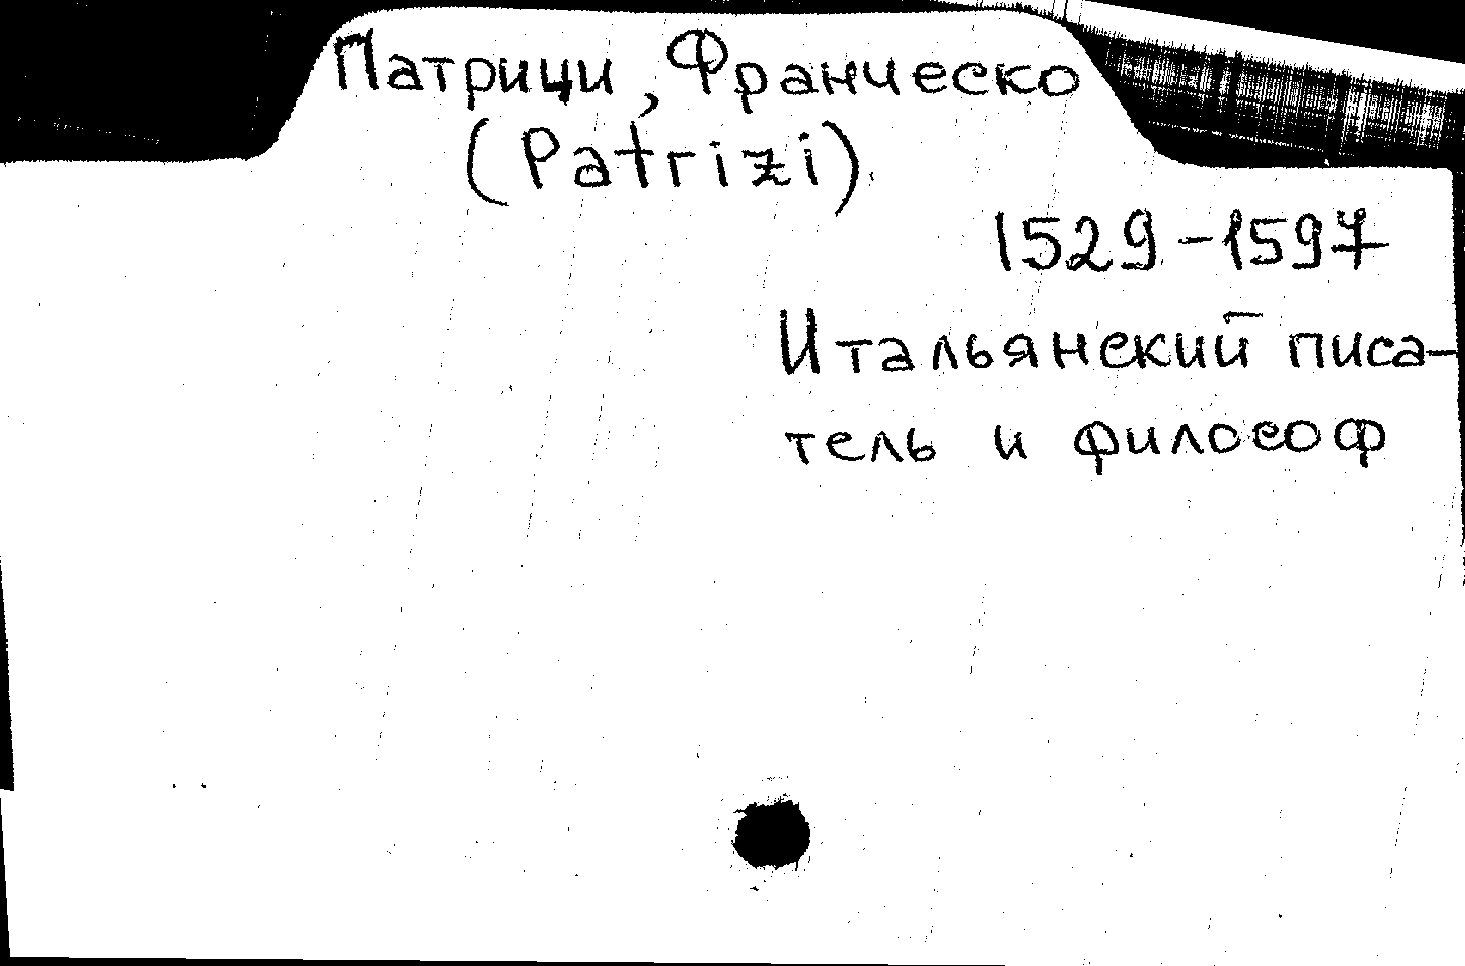 Патрици, Франческо
(Patrizi)
1529-1597
Итальянский писа-
тель и философ